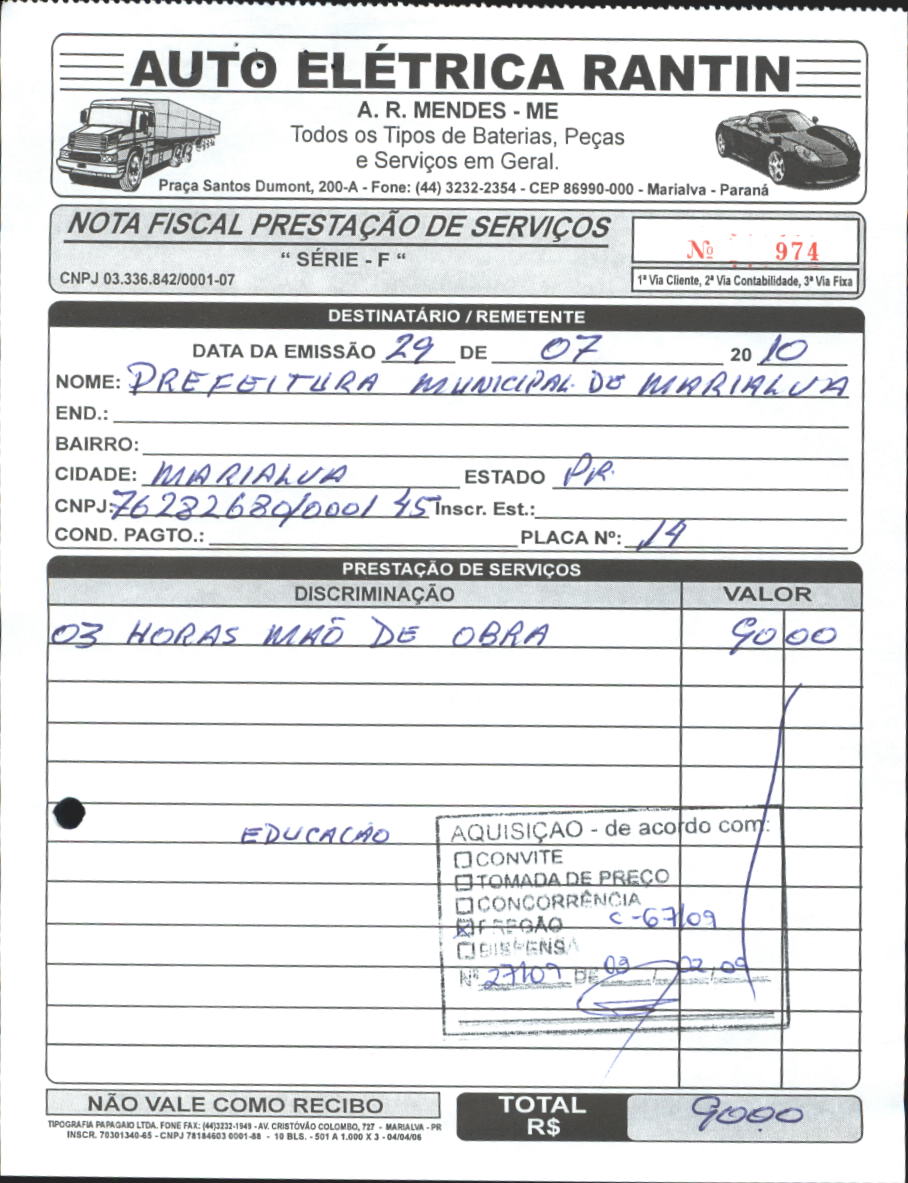 AUTO ELÉTRICA RANTIN
A. R. MENDES - ME
Todos os Tipos de Baterias, Peças
e Serviços em Geral.
Praça Santos Dumont, 200-A - Fone: (44) 3232-2354 - CEP 86990-000 - Marialva - Paraná
NOTA FISCAL PRESTAÇÃO DE SERVIÇOS
“ SÉRIE - F “
Nº 974
CNPJ 03.336.842/0001-07
1ª Via Cliente, 2ª Via Contabilidade, 3ª Via Fixa
DESTINATÁRIO / REMETENTE
DATA DA EMISSÃO 29 DE 07 2010
NOME: PREFEITURA MUNICIPAL DE MARIALVA
END.:
BAIRRO:
CIDADE: MARIALVA ESTADO PR
CNPJ: 76282680/0001 45 Inscr. Est.:
COND. PAGTO.: PLACA Nº: 14
PRESTAÇÃO DE SERVIÇOS
DISCRIMINAÇÃO VALOR
03 HORAS MAÕ DE OBRA 90 00
EDUCACÃO
AQUISIÇÃO - de acordo com:
CONVITE
TOMADA DE PREÇO
CONCORRÊNCIA
PREGÃO C-67/09
DISPENSA
Nº 27/09 DE 09 / 02, 09
NÃO VALE COMO RECIBO
TOTAL R$ 9000
TIPOGRAFIA PAPAGAIO LTDA. FONE FAX: (44)3232-1949 - AV. CRISTÓVÃO COLOMBO, 727 - MARIALVA - PR
INSCR. 70301340-65 - CNPJ 78184603 0001-88 - 10 BLS. - 501 A 1.000 X 3 - 04/04/06